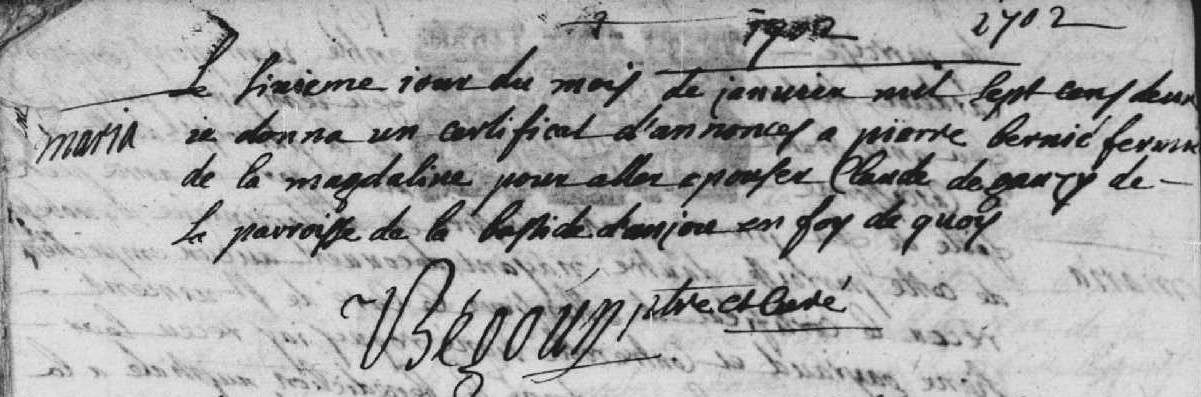 1702 1702
Le sixieme iour du mois de januier mil sept cens deux
maria ie donna un certificat d'annonces a pierre bernié fermie
de la magdaline pour aller epouser Claude de gauzy de
La parroisse de la bastide d'anjou en foy de quoy
Bégouin ptre et Curé